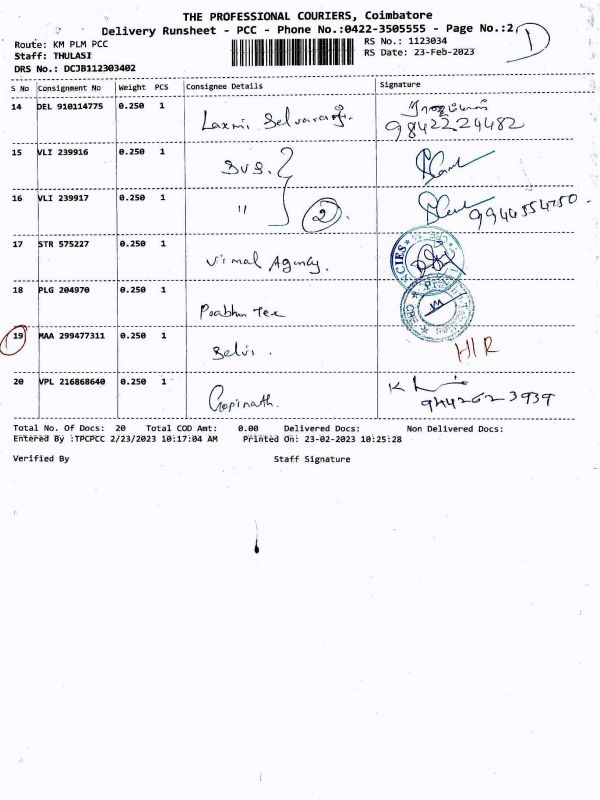 THE PROFESSIONAL COURIERS, Coimbatore
Delivery Runsheet - PCC - Phone No.:0422-3505555 - Page No.:2
Route: KM PLM PCC
RS No.: 1123034
Staff: THULASI
RS Date: 23-Feb-2023
DRS No.: DCJB112303402
S No Consignment No Weight PCS Consignee Details Signature
14 DEL 910114775 0.250 1 Laxmi Selvaraj.
9842224482
15 VLI 239916 0.250 1 SVS.
16 VLI 239917 0.250 1 " 2.
17 STR 575227 0.250 1 Vimal Agency.
18 PLG 204970 0.250 1 Prabhu Tex
19 MAA 299477311 0.250 1 Selvi. H/R
20 VPL 216868640 0.250 1 Gopinath.
Total No. Of Docs: 20 Total COD Amt: 0.00 Delivered Docs: Non Delivered Docs:
Entered By :TPCPCC 2/23/2023 10:17:04 AM Printed On: 23-02-2023 10:25:28
Verified By Staff Signature